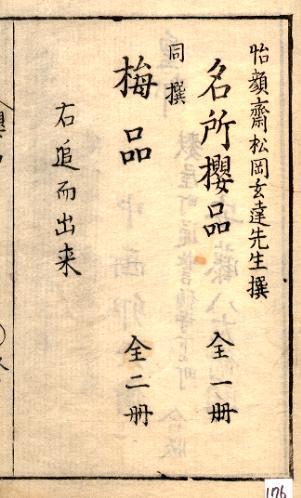 怡顔齋松岡玄達先生撰
名所櫻品 全一册
同撰
梅品 全二册
右追而出来
176